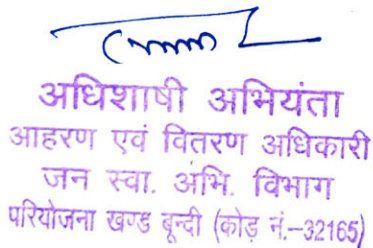 अधिशाषी अभियंता
आहरण एवं वितरण अधिकारी
जन स्वा. अभि. विभाग
परियोजना खण्ड बून्दी (कोड़ नं.–32165)